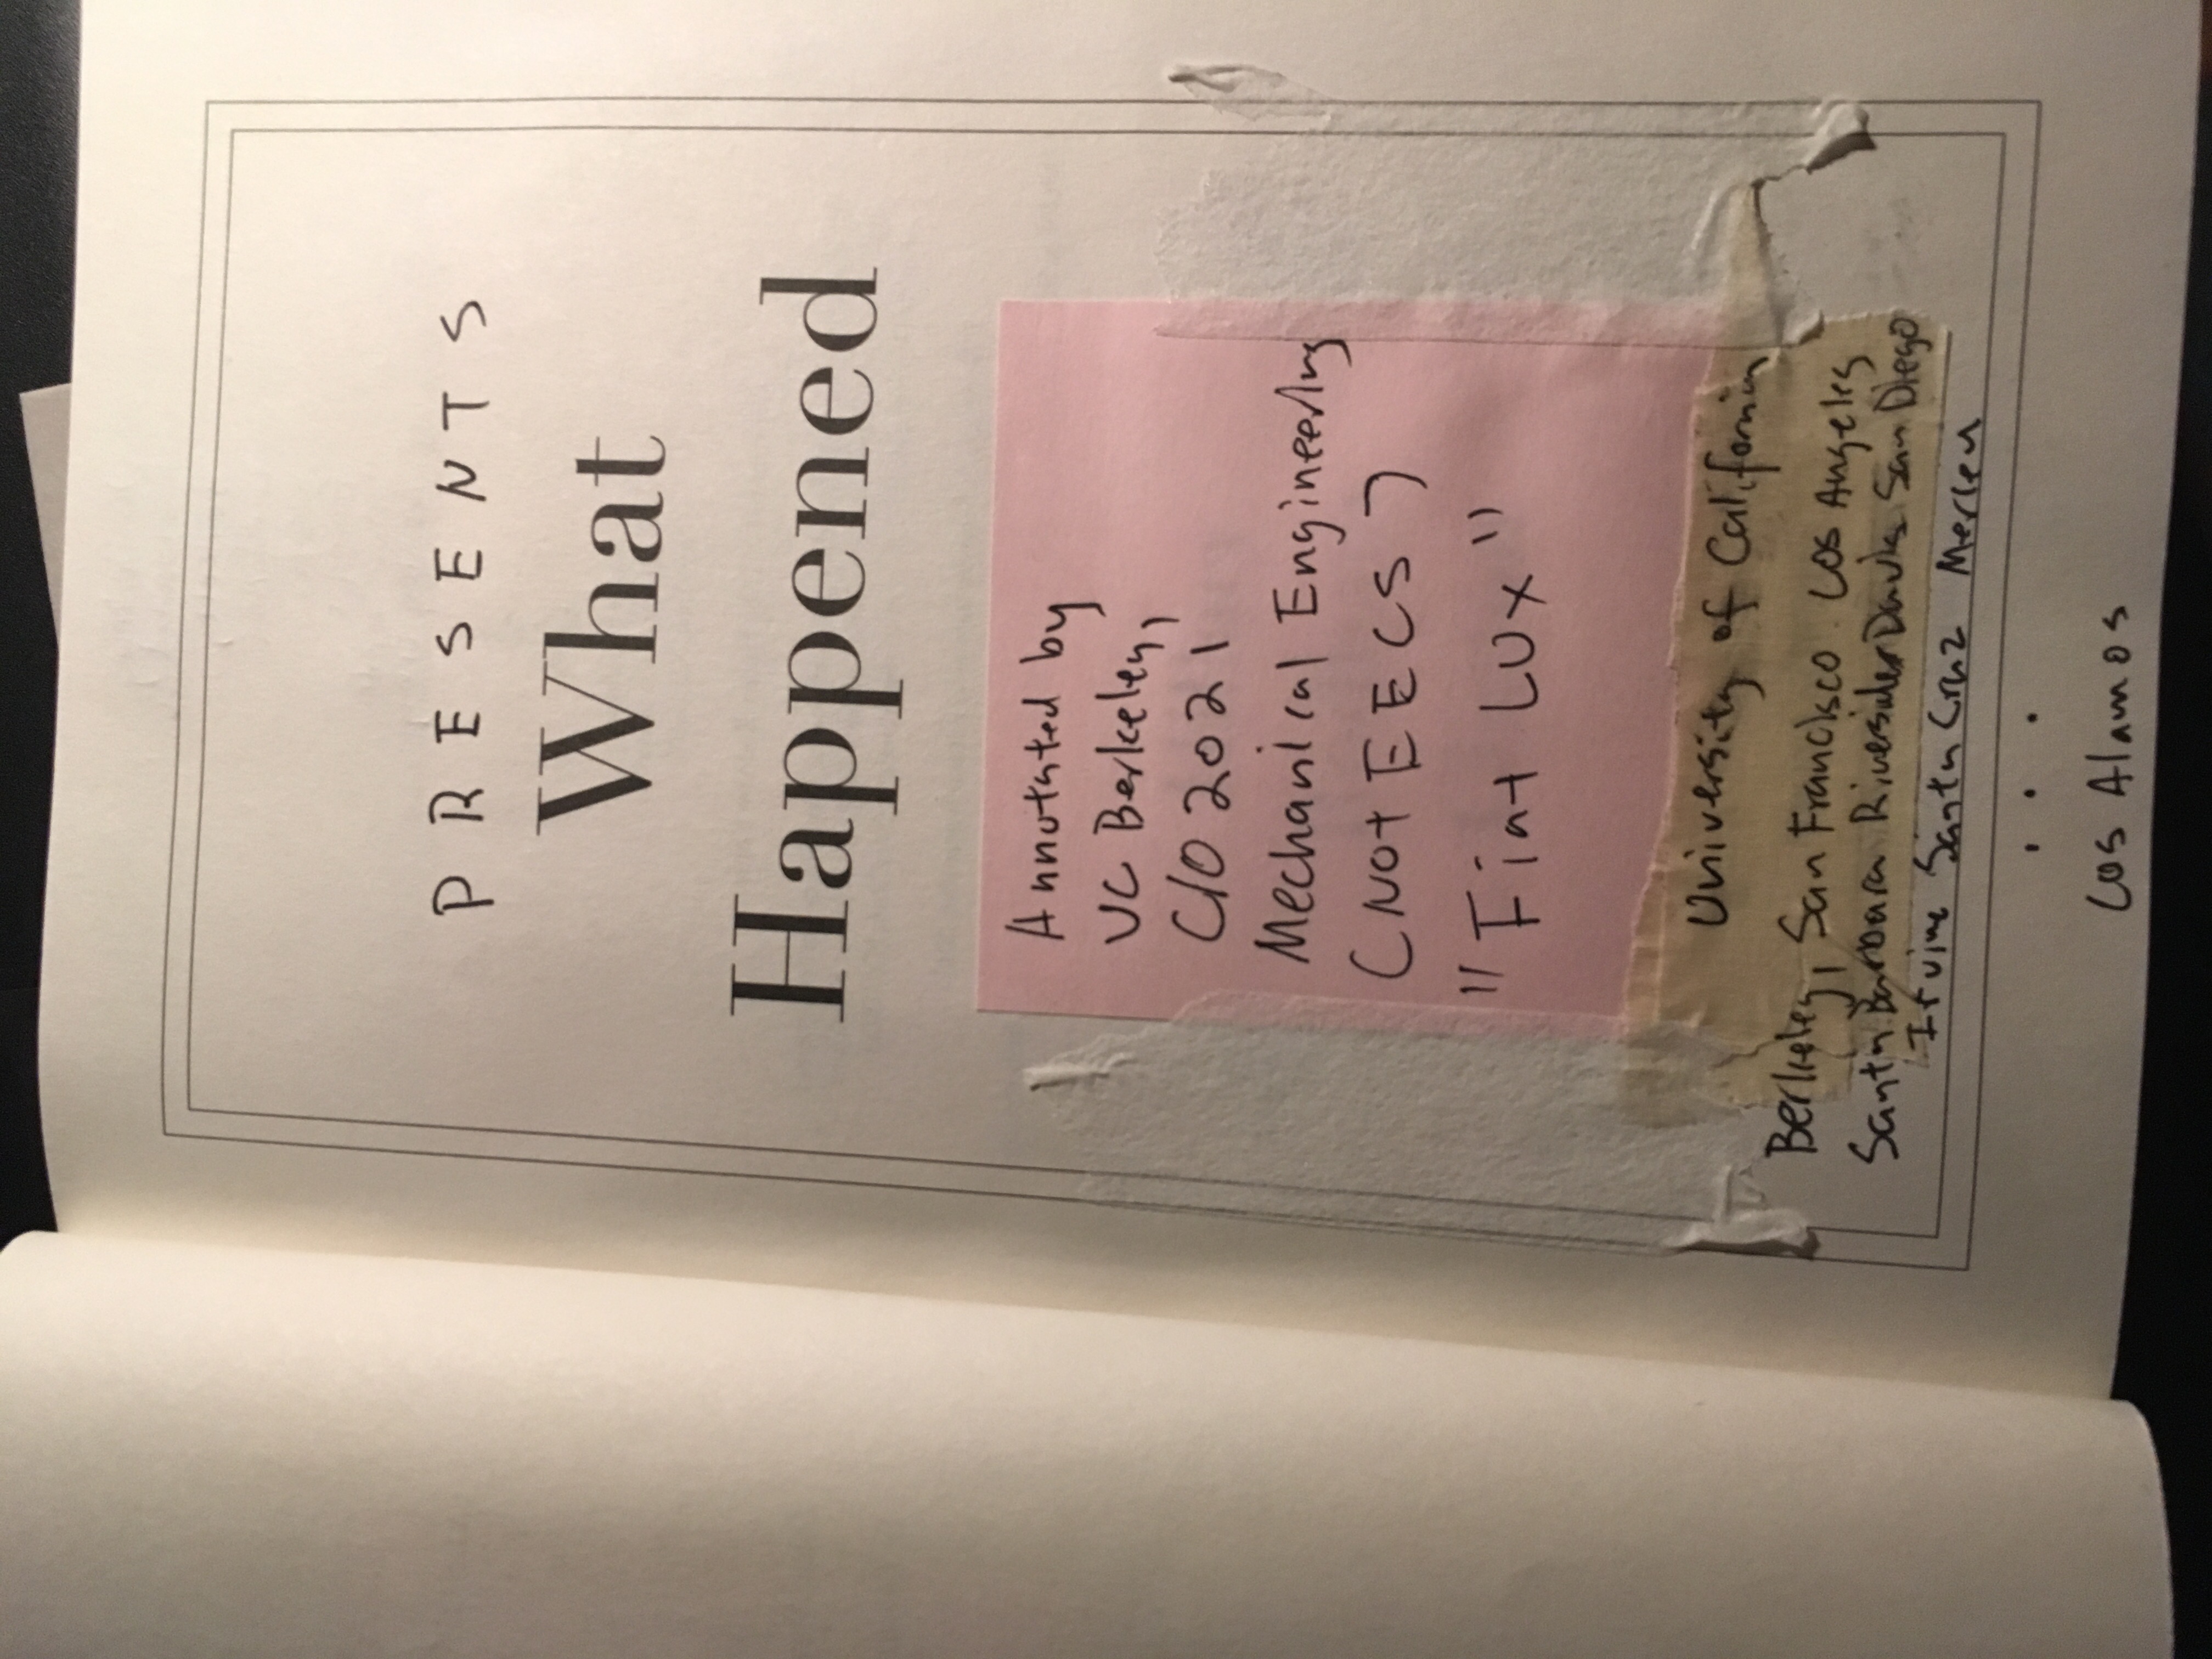 PRESENTS
What
Happened
Annotated by
UC Berkeley,
C/O 2021
Mechanical Engineering
(Not EECS)
"Fiat Lux"
University of California
Berkeley, San Francisco Los Angeles
Santa Barbara Riverside Davis San Diego
Irvine Santa Cruz Merced
...
Los Alamos